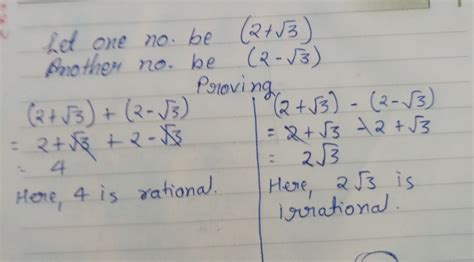 Let one no. be (2+√3)
Another no. be (2-√3)
Proving
(2+√3) + (2-√3)
= 2+√3 + 2-√3
= 4
Here, 4 is rational.
(2+√3) - (2-√3)
= 2+√3 -2+√3
= 2√3
Here, 2√3 is
irrational.